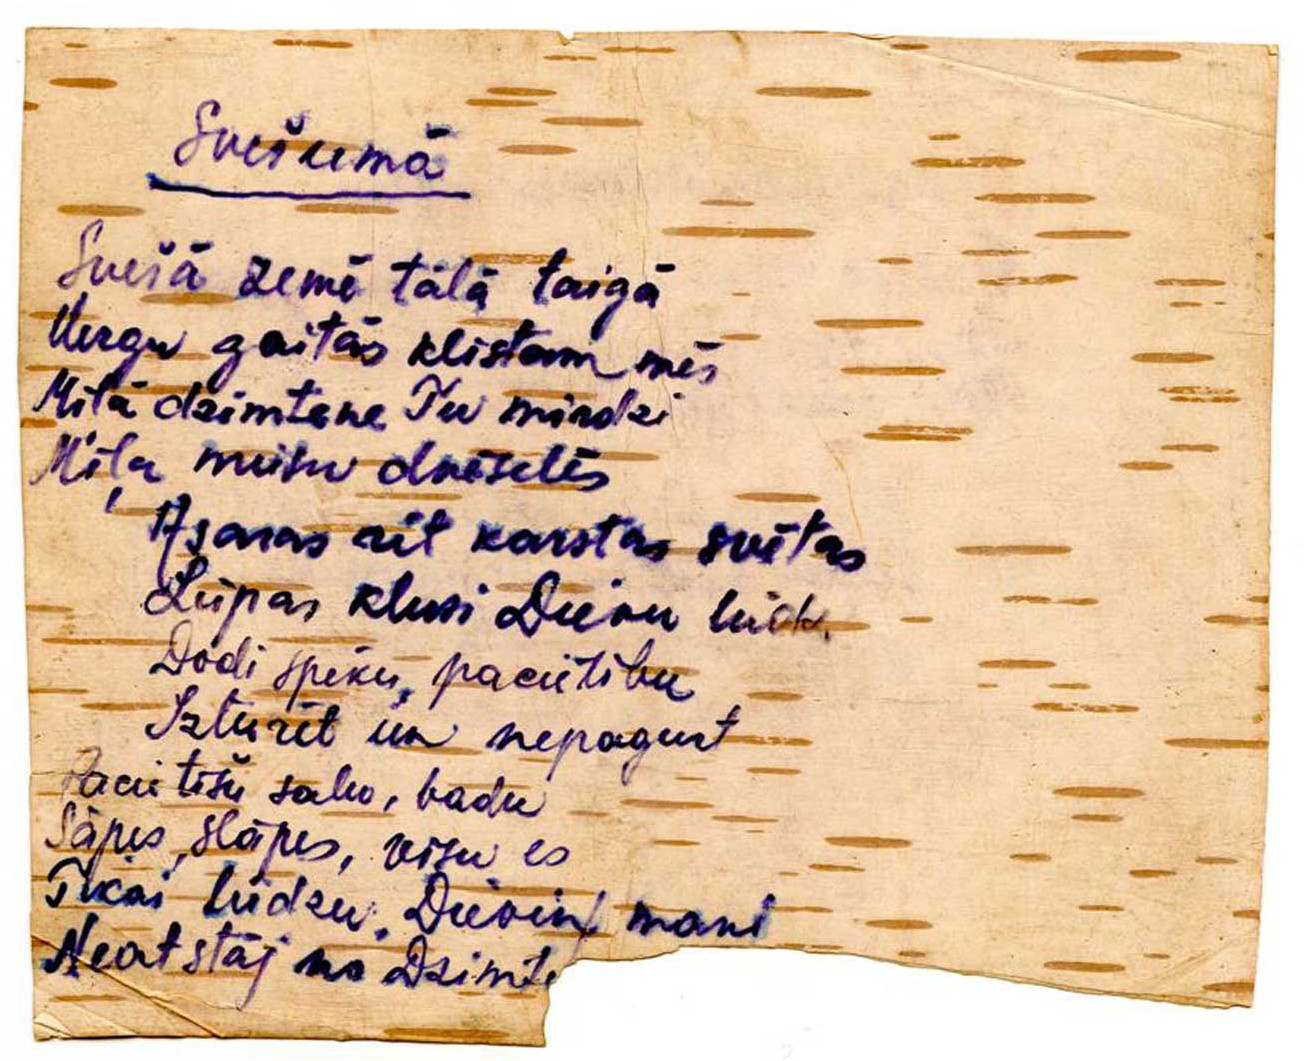 Svešumā
Svešā zemē tālā taigā
Vergu gaitās klīstam mēs
Mīļā dzimtene Tu mirdzi
Mīļa mūsu dvēselēs
Asaras rit karstas svētas
Lūpas klusi Dievu lūdz.
Dodi spēku, pacietību
Izturēt un nepagurt
Pacietīšu salu, badu
Sāpes, slāpes, visu es
Tikai lūdzu, Dieviņ mani
Neatstāj no Dzimte